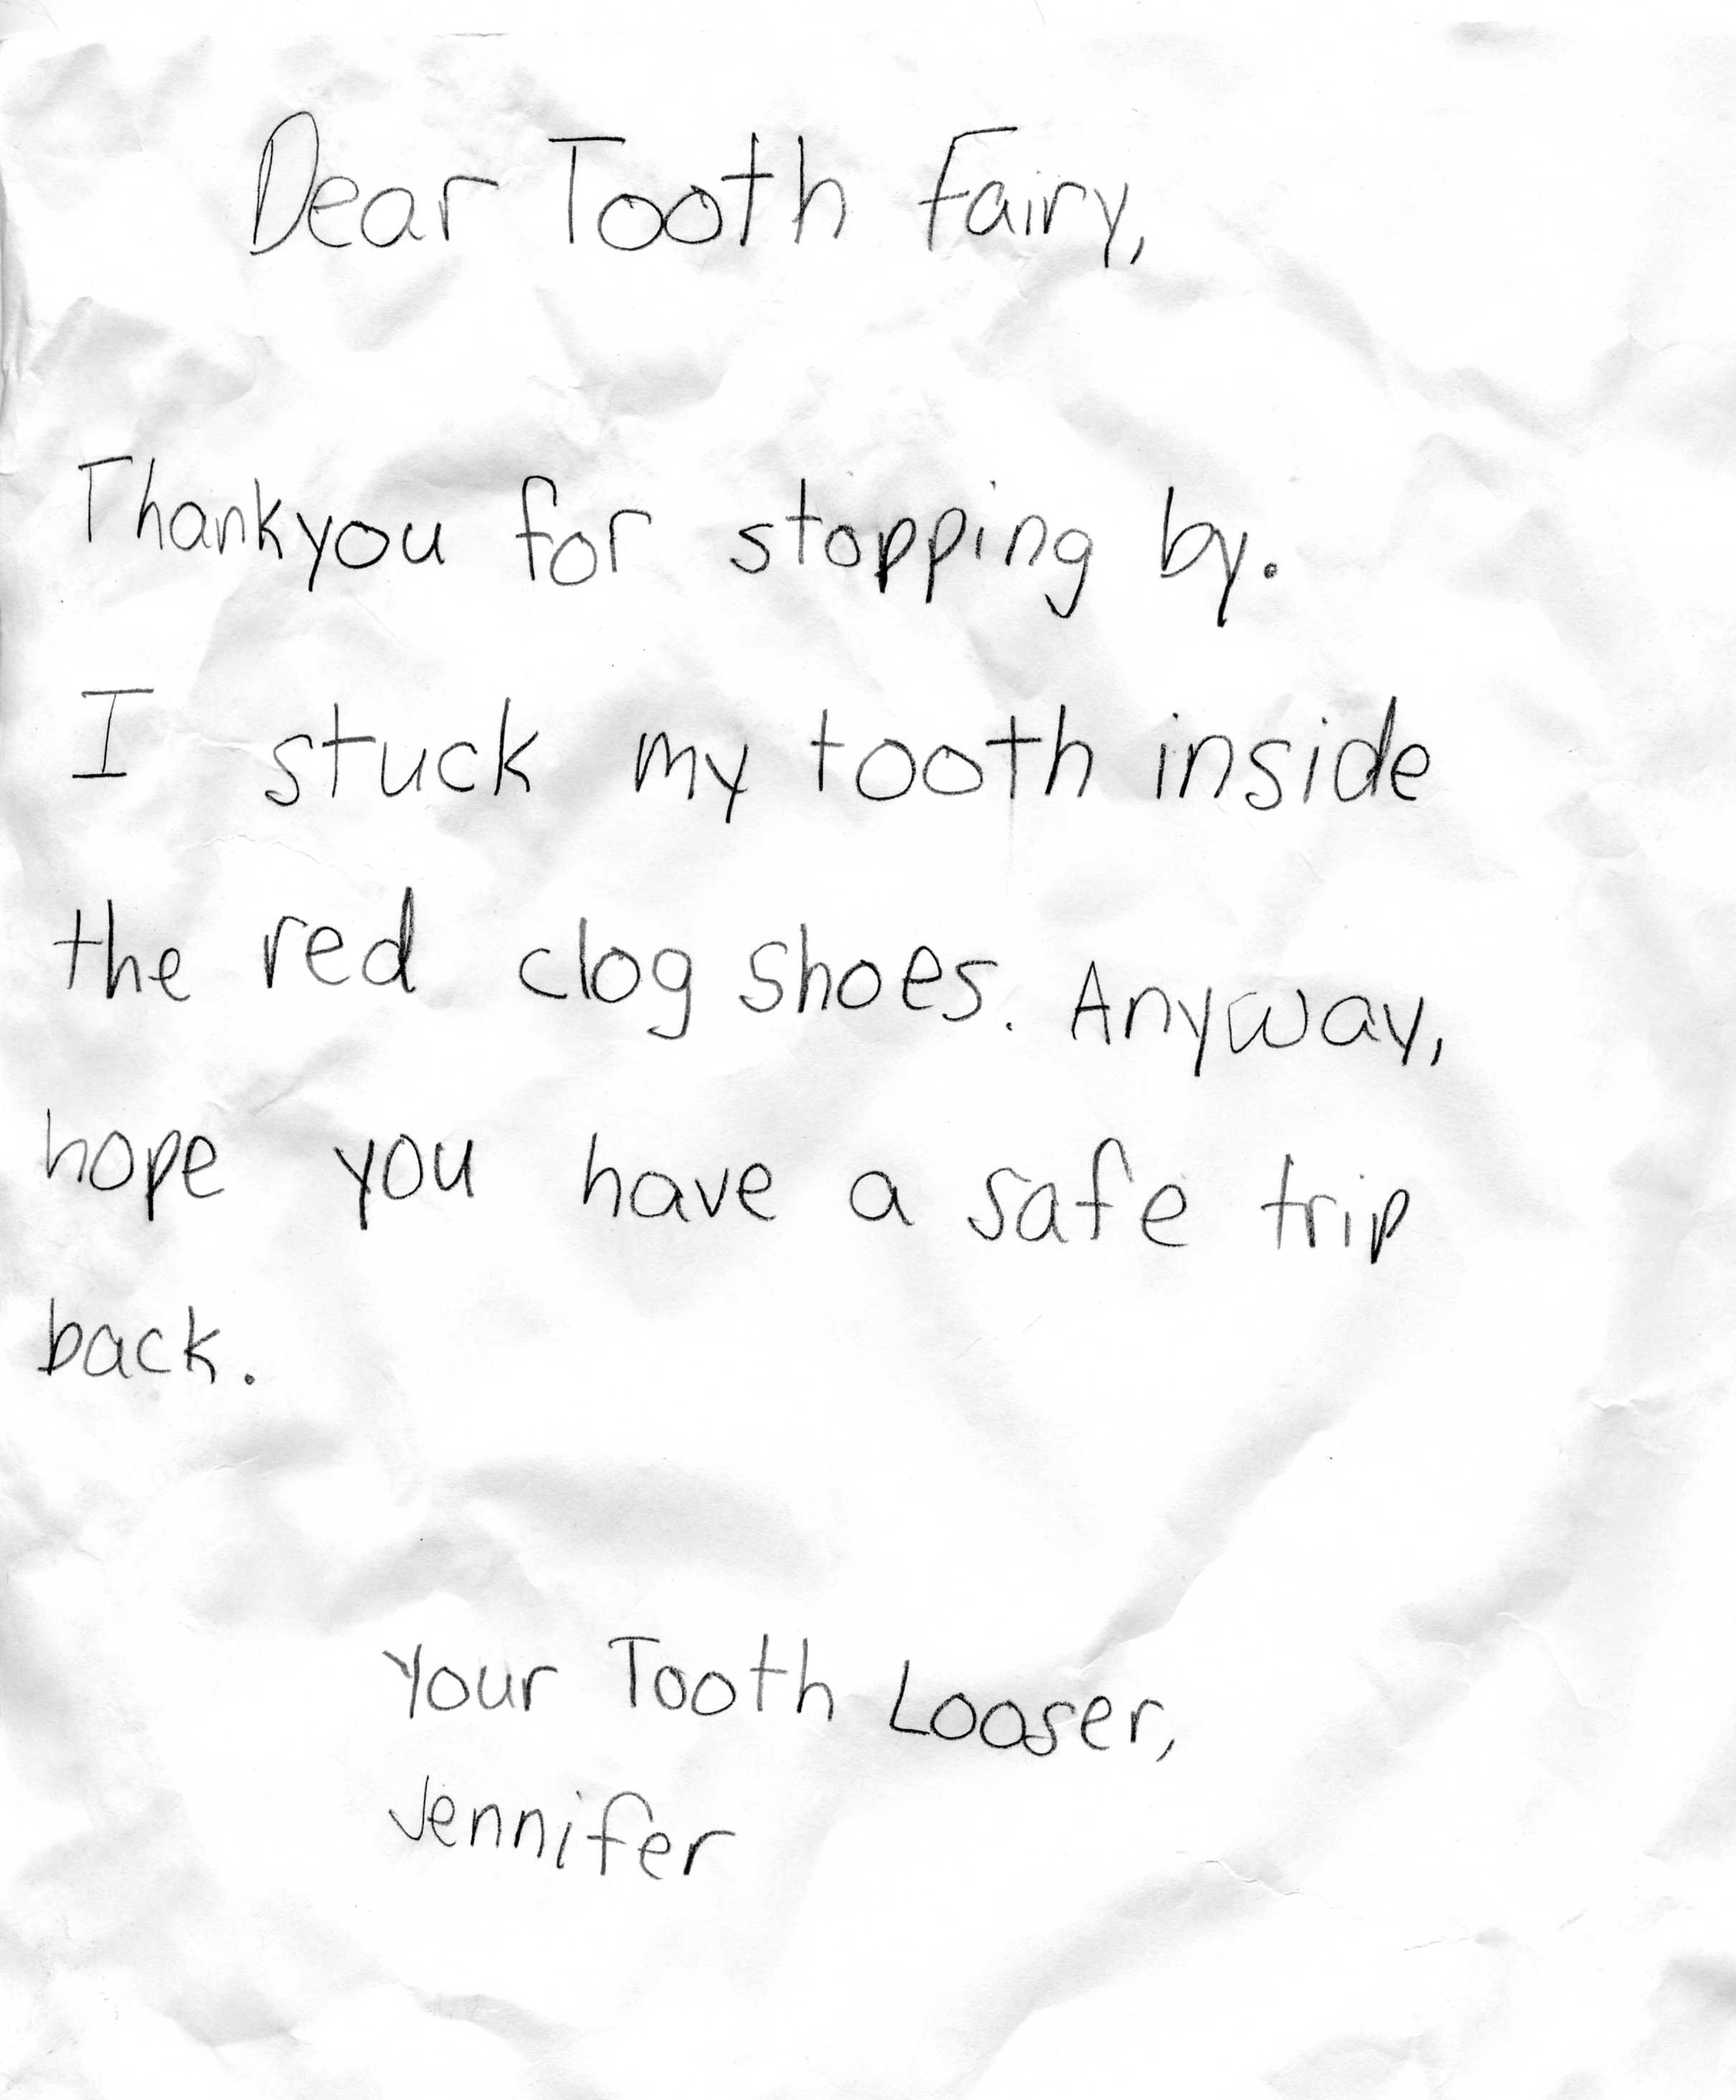 Dear Tooth Fairy,
Thankyou for stopping by.
I stuck my tooth inside
the red clog shoes. Anyway,
hope you have a safe trip
back.
Your Tooth Looser,
Jennifer